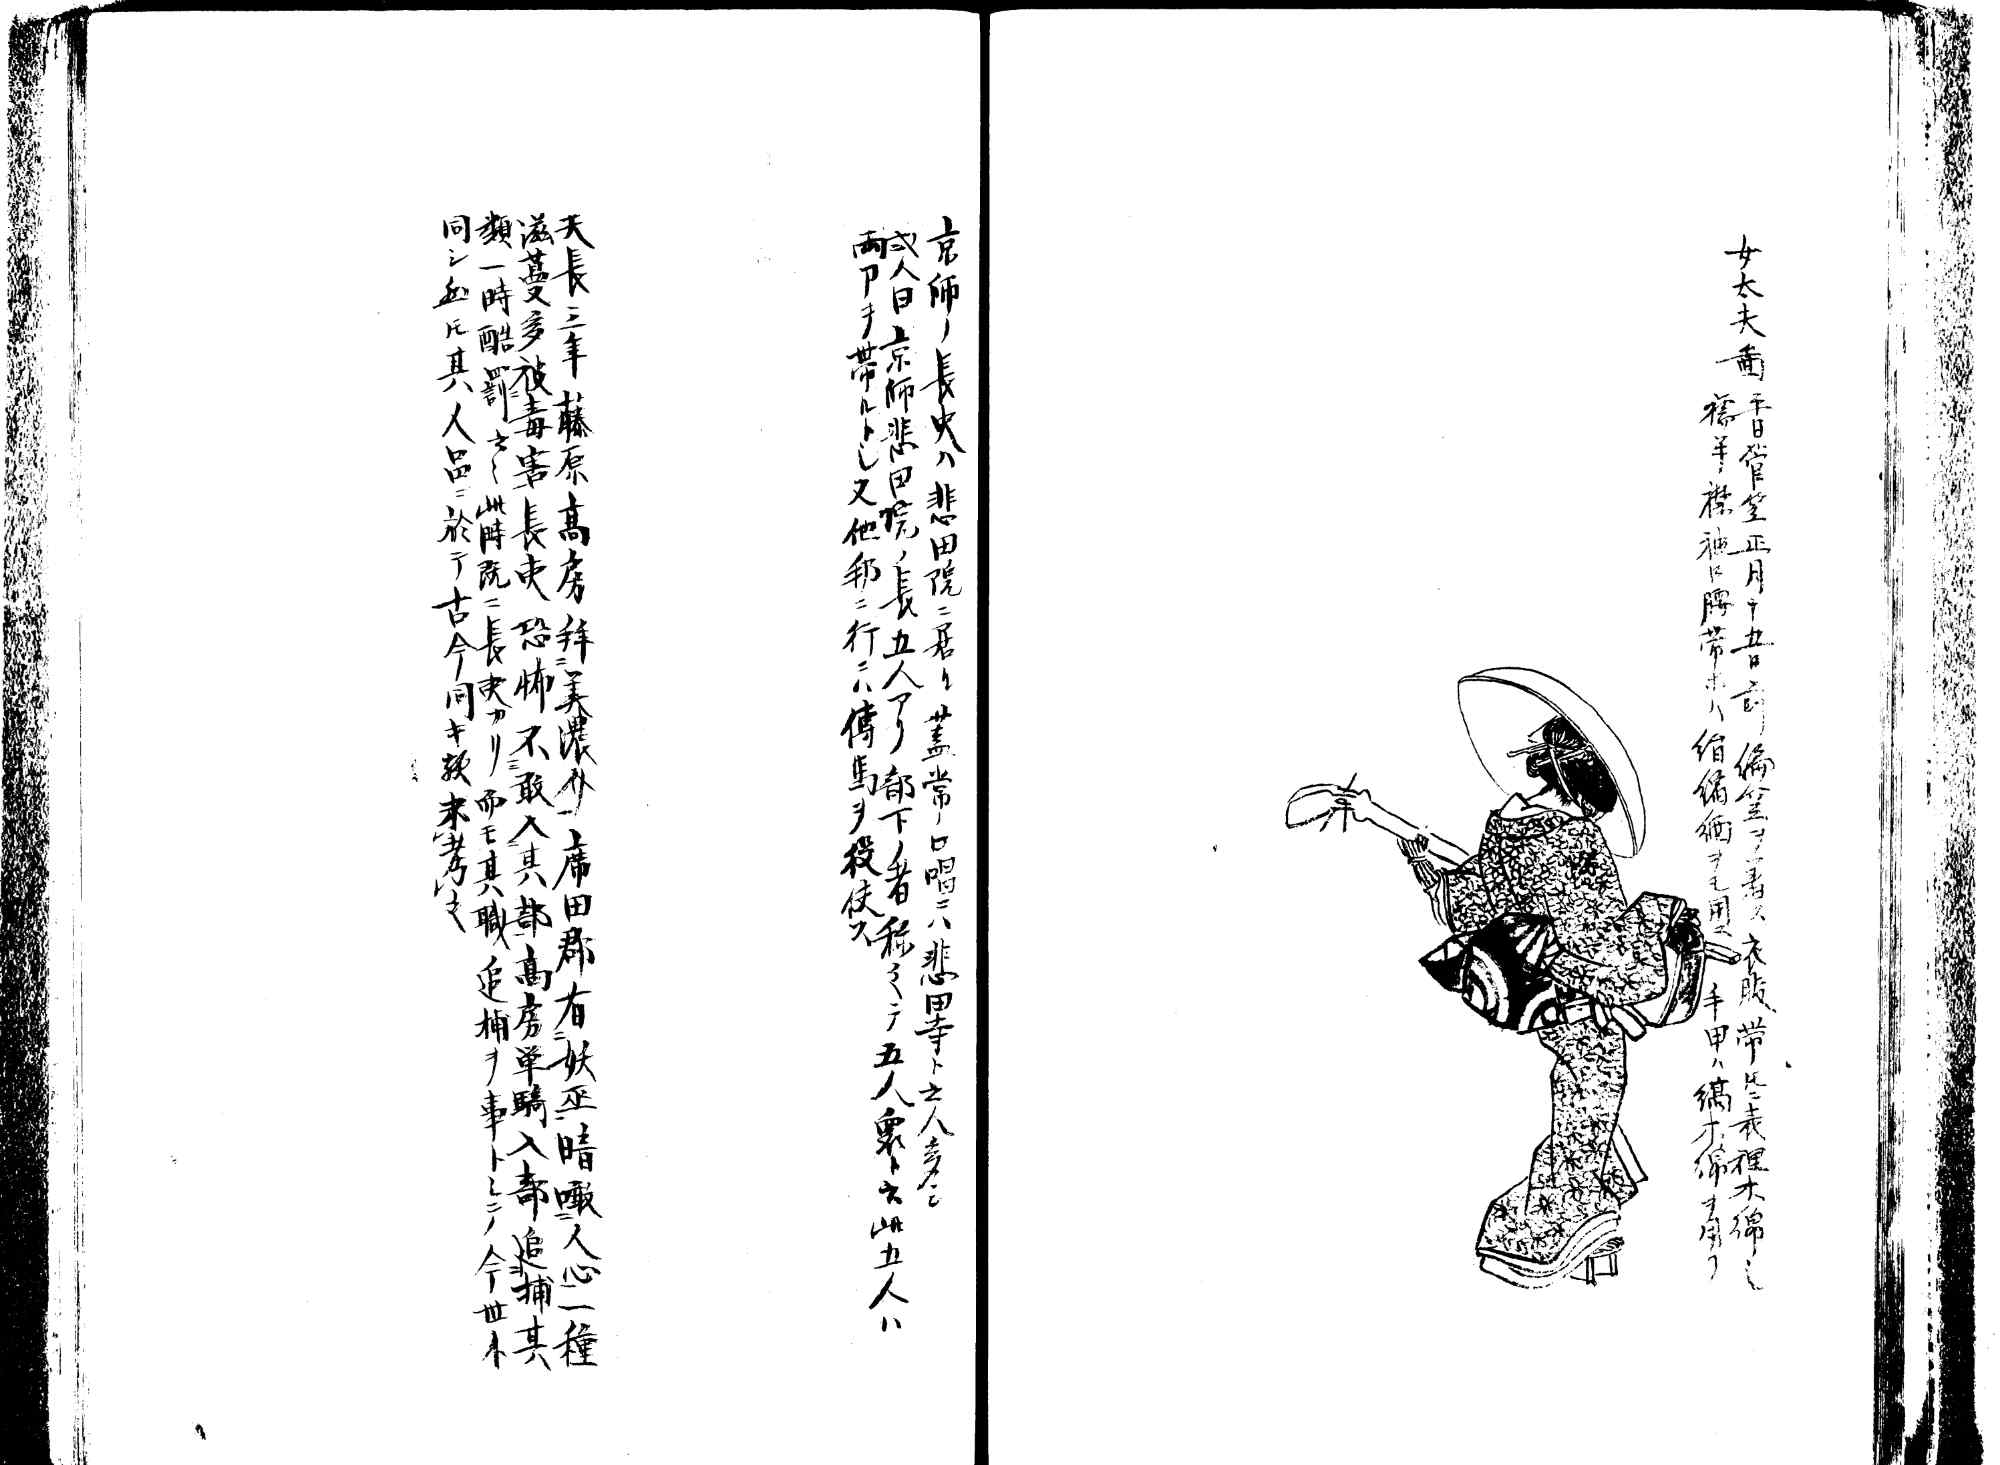 女太夫圖
平日菅笠正月十五日前編笠ヲ着ス衣服帯トモニ表裡木綿也
襦半ノ襟袖口腰帯ホハ絹縮緬ヲモ用フ手甲ハ縞木綿ヲ用フ
京師ノ長吏ハ悲田院ニ居ル蓋常ノ口唱ニハ悲田寺ト云人多シ
或人曰京師悲田院ノ長五人アリ部下ノ者称之テ五人衆ト云此五人ハ
両刀ヲ帯ルトし又他邦ニ行ニハ傳馬ヲ役使ス
天長三年藤原高房拜美濃介席田郡有妖巫暗噉人心一種
滋蔓多被毒害長吏恐怖不敢入其部高房単騎入部追捕其
類一時酷罰之ト此時既ニ長吏アリ而モ其職追捕ヲ事トシニノ今世ト
同シ然トモ其人品ニ於テ古今同キ歟未考之